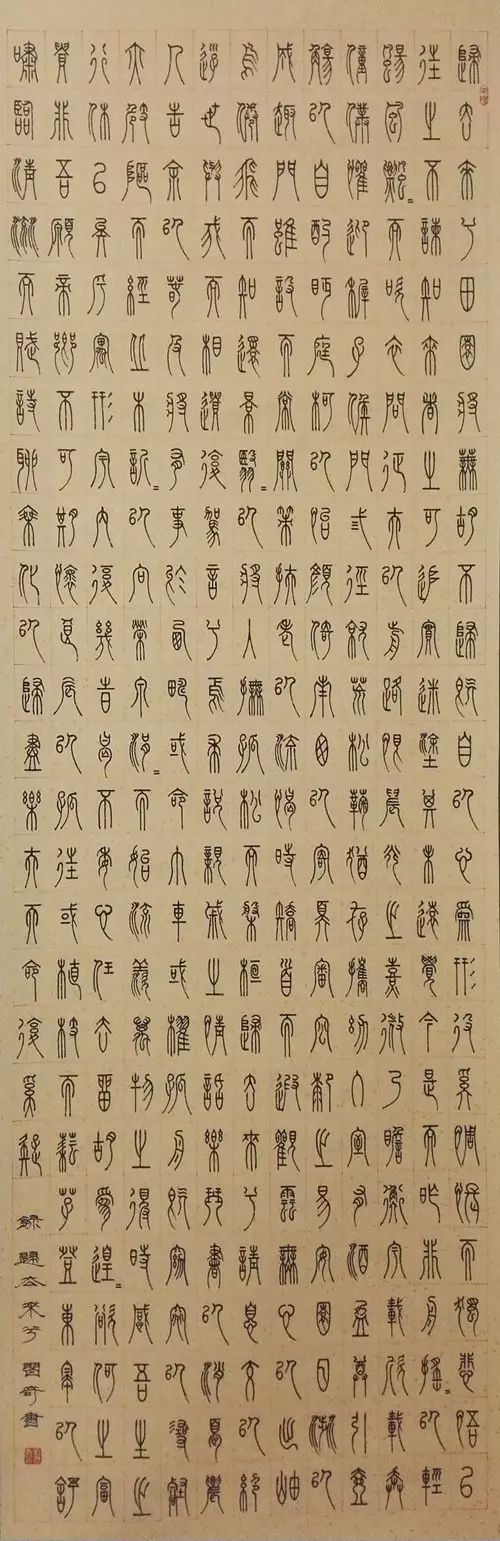 歸去來兮田園將蕪胡不歸既自以心爲形役奚惆悵而獨悲悟已
往之不諫知來者之可追實迷塗其未遠覺今是而昨非舟搖=以輕
颺風飄=而吹衣問征夫以前路恨晨光之熹微乃瞻衡宇載欣載奔
僮僕懽迎稚子候門三徑就荒松菊猶存攜幼入室有酒盈尊引壺
觴以自酌眄庭柯以怡顏倚南窗以寄傲審容膝之易安園日涉以
成趣門雖設而常關策扶老以流憩時矯首而遐觀雲無心以出岫
鳥倦飛而知還景翳=以將入撫孤松而盤桓歸去來兮請息交以絕
遊世與我而相遺復駕言兮焉求悅親戚之情話樂琴書以消憂農
人告余以春及將有事於西疇或命巾車或櫂孤舟既窈窕以尋壑
亦崎嶇而經丘木欣=以向榮泉涓=而始流羨萬物之得時感吾生之
行休已矣乎寓形宇內復幾時曷不委心任去留胡爲遑=欲何之富
貴非吾願帝鄉不可期懷良辰以孤往或植杖而耘耔登東皋以舒
嘯臨清流而賦詩聊乘化以歸盡樂夫天命復奚疑
錄歸去來兮 奇書